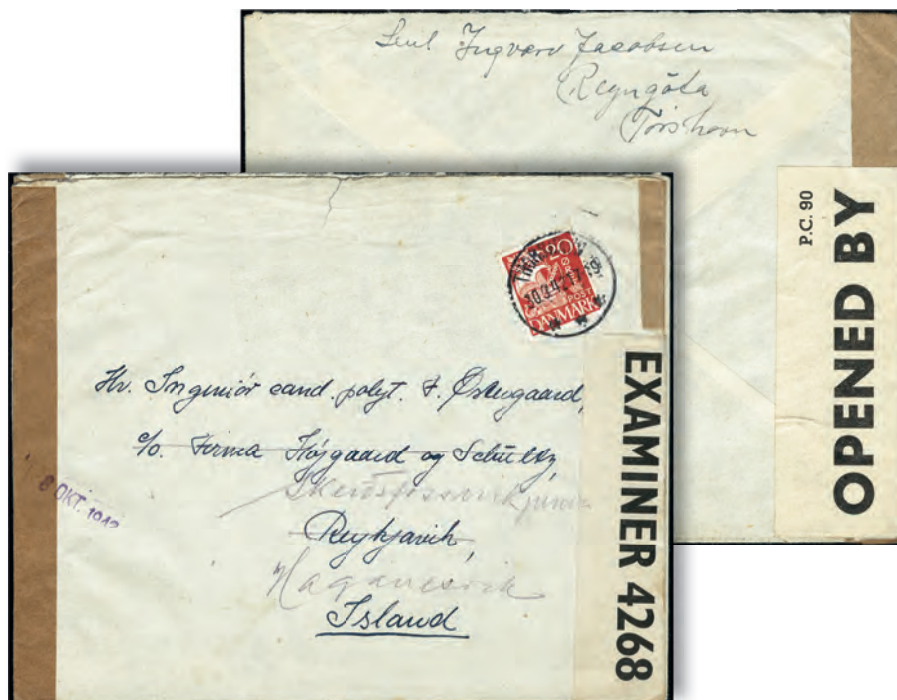 Ingvard Jacobsen
Reyngøta
Tórshavn
P.C. 90
OPENED BY
20
POST
DANMARK
Hr. Ingeniör cand. polyt. F. Østergaard,
c/o. Firma Højgaard og Schultz,
Reykjavik,
Haganesvik
Island
8 OKT. 1942
EXAMINER 4268